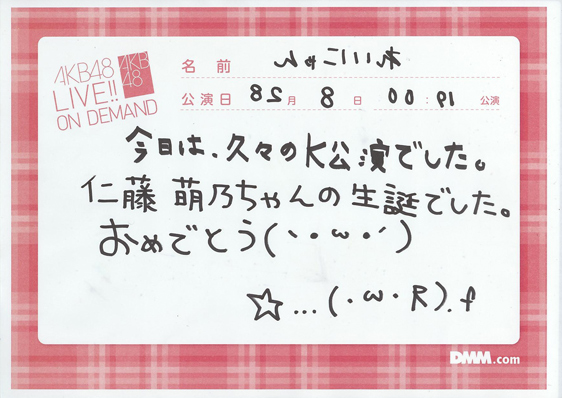 AKB48
LIVE!!
ON DEMAND
AKB
48
名前 れいにゃん
公演日 28月 8日 00:19 公演
今日は、久々のK公演でした。
仁藤 萌乃ちゃんの生誕でした。
おめでとう(｀・ω・´)
☆...(・ω・R).f
DMM.com